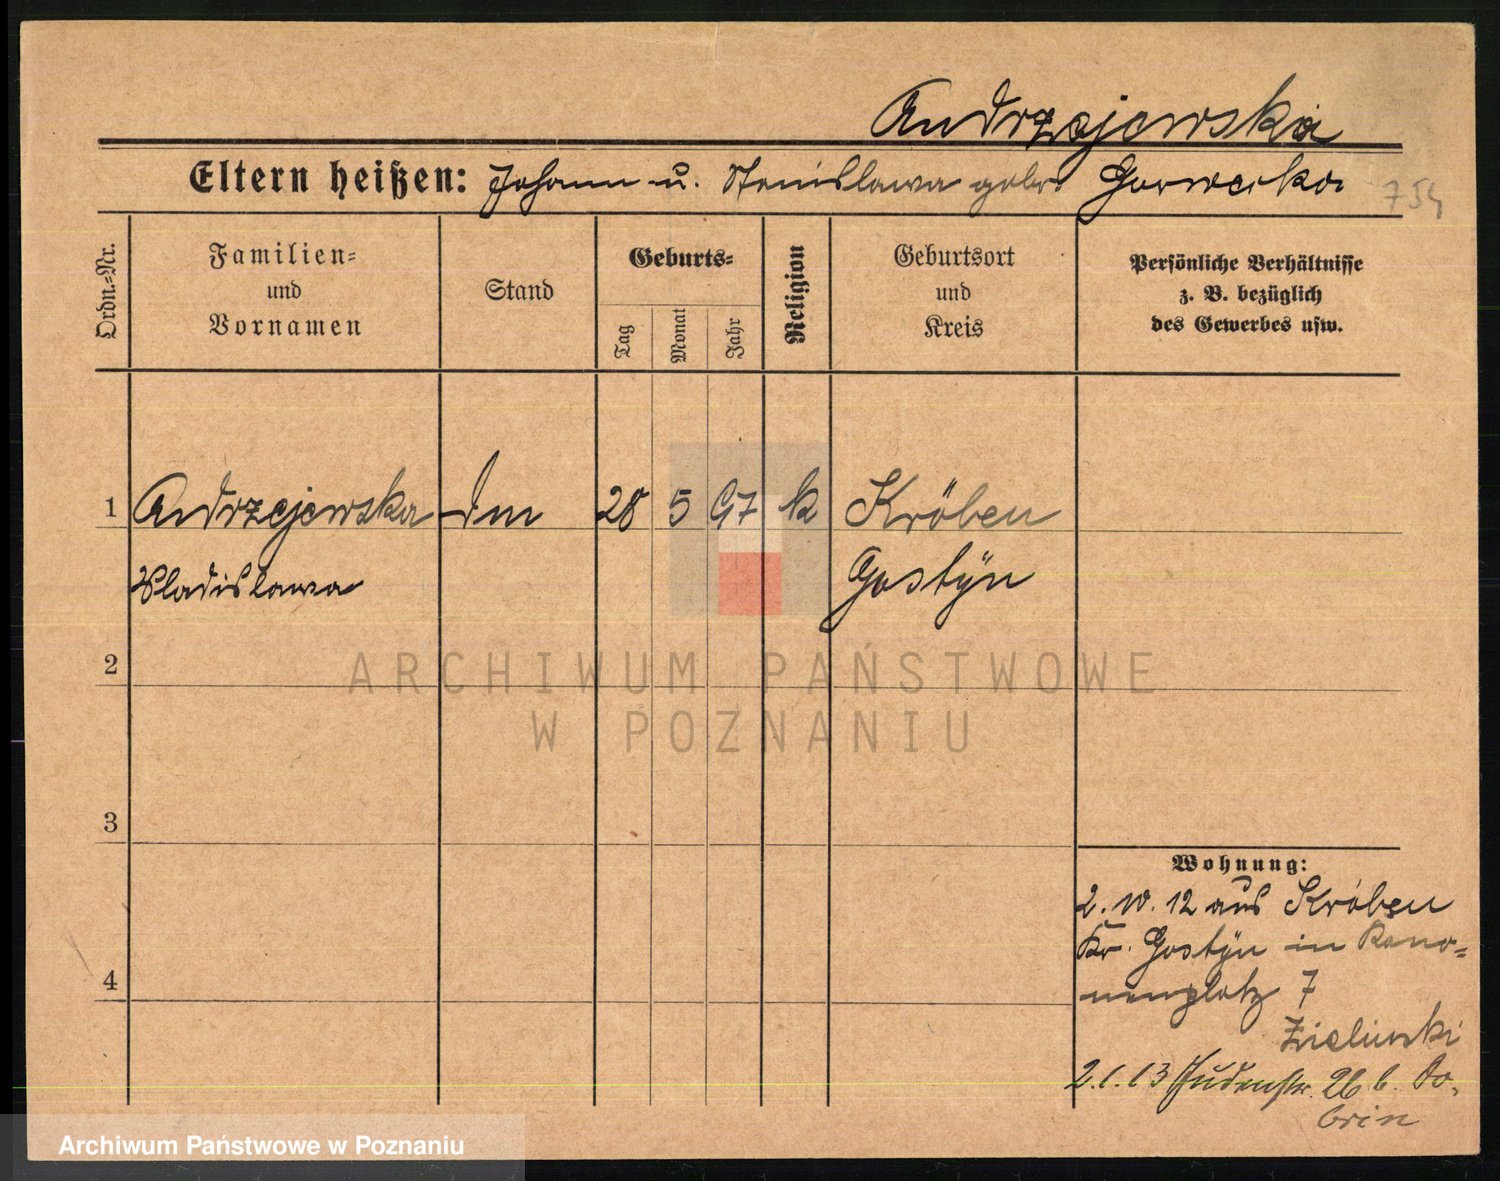 Andrzejewska
Eltern heißen: Johann u. Stanislawa gebr. Gorwecka
754
Ordn.-Nr.
Familien-
und
Vornamen
Stand
Geburts-
Tag
Monat
Jahr
Religion
Geburtsort
und
Kreis
Persönliche Verhältnisse
z. B. bezüglich
des Gewerbes usw.
1 Andrzejewska Dm 28 5 97 k Kröben
Wladislawa Gostÿn
2
ARCHIWUM PAŃSTWOWE
W POZNANIU
3
Wohnung:
2.10.12 aus Kröben
Kr. Gostÿn in Kano-
4
nenplatz 7
Zielinski
2.1.13 Judenstr. 26 b. Do-
brin
Archiwum Państwowe w Poznaniu